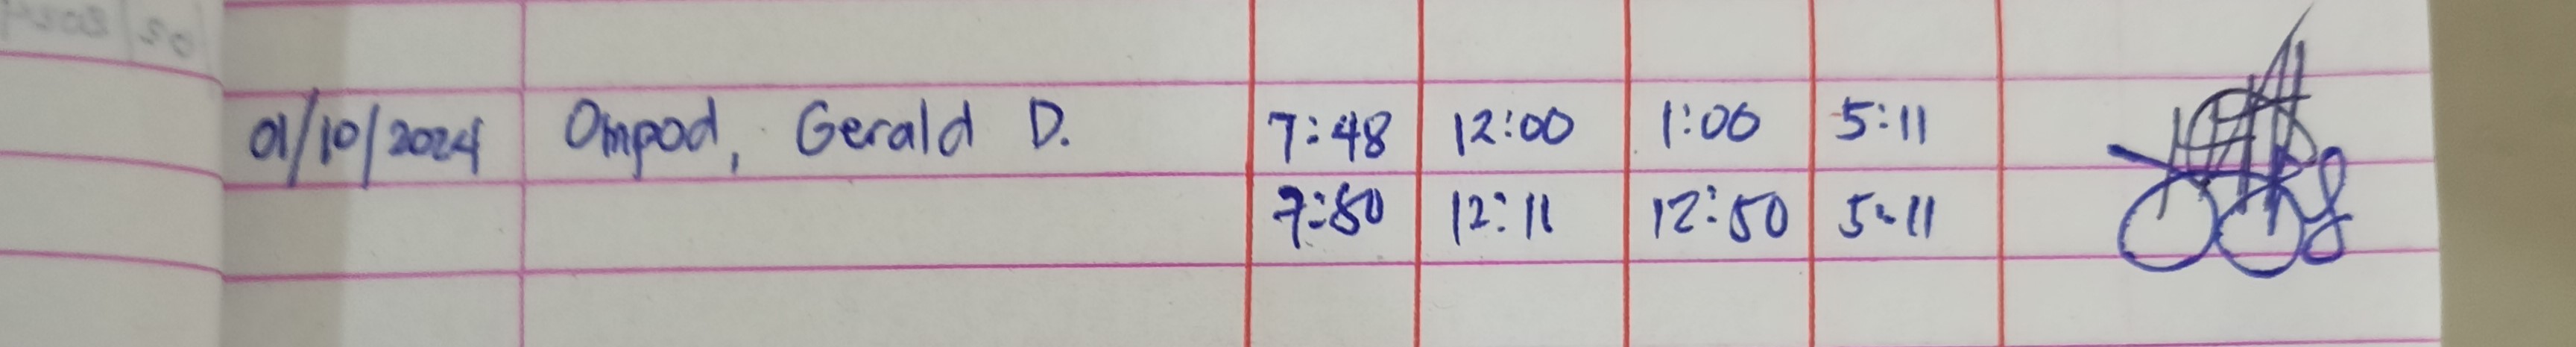 01/10/2024 Ompod, Gerald D. 7:48 12:00 1:00 5:11
7:50 12:11 12:50 5:11